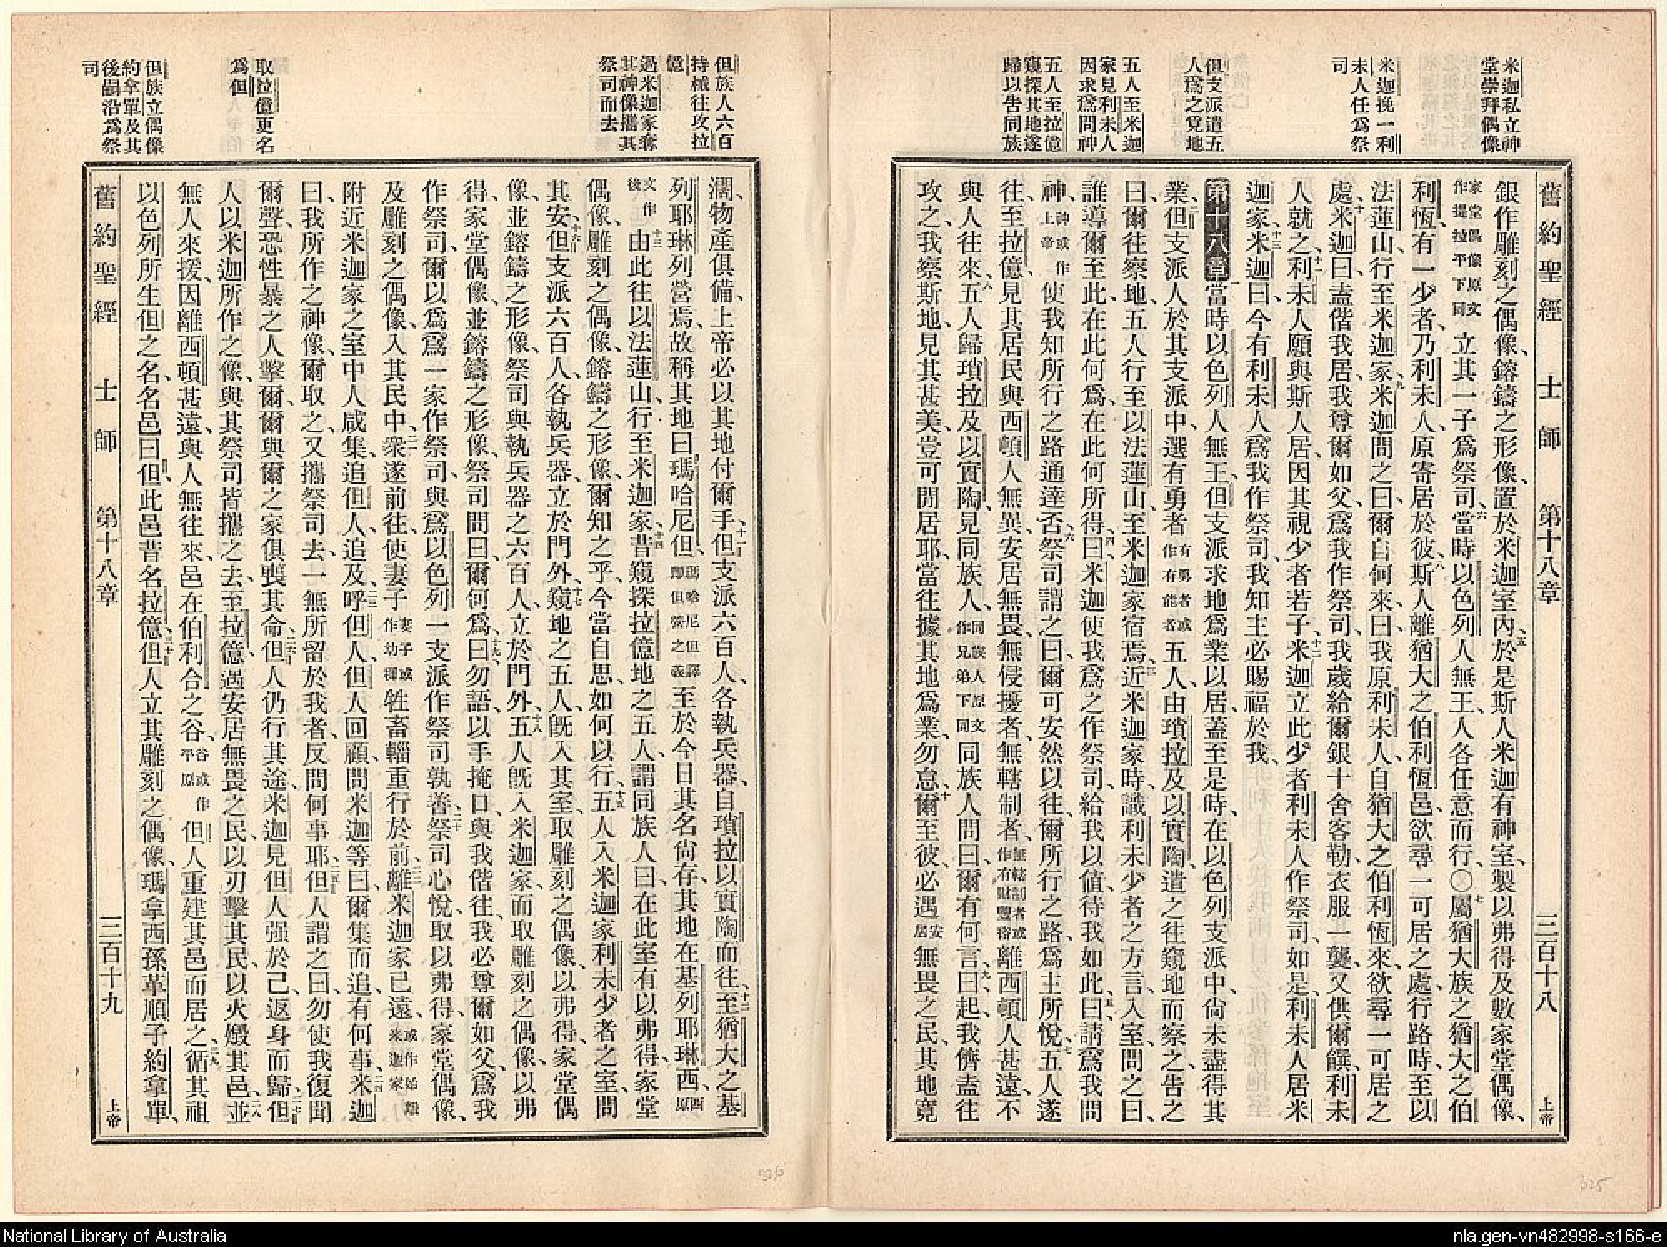 米迦私立神
堂崇拜偶像
米迦挽一利
未人任為祭
司
但支派遣五
人為之覓地
五人至米迦
家見利未人
因求為問神
五人至拉億
窺探其地遂
歸以告同族
舊約聖經 士師 第十八章 三百十八 上帝
銀作雕刻之偶像、鎔鑄之形像、置於米迦室內、五於是斯人米迦有神室、製以弗得、及數家堂偶像、
家堂偶像原文作提拉平下同立其一子為祭司、六當時以色列人無王、人各任意而行、〇七屬猶大族之猶大之伯
利恆、有一少者、乃利未人、原寄居於彼、八斯人離猶大之伯利恆邑、欲尋一可居之處、行路時、至以
法蓮山、行至米迦家、九米迦問之曰、爾自何來、曰、我原利未人、自猶大之伯利恆來、欲尋一可居之
處、十米迦曰、盍偕我居、我尊爾如父、為我作祭司、我歲給爾銀十舍客勒、衣服一襲、又供爾饌、利未
人就之、十一利未人願與斯人居、因其視少者若子、十二米迦立此少者利未人作祭司、如是、利未人居米
迦家、十三米迦曰、今有利未人為我作祭司、我知主必賜福於我、
第十八章 一當時以色列人無王、但支派求地為業以居、蓋至是時、在以色列支派中、尚未盡得其
業、二但支派人於其支派中、選有勇者有勇者或作有能者五人、由瑣拉及以實陶、遣之往窺地而察之、告之
曰、爾往察地、五人行至以法蓮山、至米迦家宿焉、三近米迦家時、識利未少者之方言、入室問之曰、
誰導爾至此、在此何為、在此何所得、四曰、米迦使我為之作祭司、給我以值、待我如此、五曰、請為我問
神、神或作上帝使我知所行之路通達否、六祭司謂之曰、爾可安然以往、爾所行之路、為主所悅、七五人遂
往、至拉億、見其居民與西頓人無異、安居無畏、無侵擾者、無轄制者、無轄制者或作有財豐裕離西頓人甚遠、不
與人往來、八五人歸瑣拉及以實陶、見同族人、同族人原文作兄弟下同同族人問曰、爾有何言、九曰、起、我儕盍往
攻之、我察斯地、見其甚美、豈可閒居耶、當往據其地為業、勿怠、十爾至彼、必遇安居無畏之民、其地寬
但族人六百
持械往攻拉
億
過米迦家奪
其神像攜其
祭司而去
取拉億更名
為但
但族立偶像
約拿單及其
後嗣沿為祭
司
闊、物產俱備、上帝必以其地付爾手、十一但支派六百人、各執兵器、自瑣拉以實陶而往、十二至猶大之基
列耶琳列營焉、故稱其地曰瑪哈尼但、瑪哈尼但譯即但營之義至於今日、其名尚存、其地在基列耶琳西、西原
文作後十三由此往以法蓮山、行至米迦家、十四昔窺探拉億地之五人、謂同族人曰、在此室有以弗得、家堂
偶像、雕刻之偶像、鎔鑄之形像、爾知之乎、今當自思如何以行、十五五人入米迦家利未少者之室、問
其安、十六但支派六百人、各執兵器、立於門外、十七窺地之五人、既入其室、取雕刻之偶像、以弗得、家堂偶
像、並鎔鑄之形像、祭司與執兵器之六百人、立於門外、十八五人既入米迦家、而取雕刻之偶像、以弗
得、家堂偶像、並鎔鑄之形像、祭司問曰、爾何為、十九曰、勿語、以手掩口、與我偕往、我必尊爾如父、為我
作祭司、爾以為為一家作祭司、與為以色列一支派作祭司孰善、二十祭司心悅、取以弗得、家堂偶像、
及雕刻之偶像、入其民中、二一眾遂前往、使妻子妻子或作幼穉牲畜輜重行於前、二二離米迦家已遠、
附近米迦家之室中人咸集、追但人、追及、二三呼但人、但人回顧、問米迦等曰、爾集而追、有何事、二四米迦
曰、我所作之神像、爾取之、又攜祭司去、一無所留於我者、反問何事耶、二五但人謂之曰、勿使我復聞
爾聲、恐性暴之人擊爾、爾與爾之家俱喪其命、二六但人仍行其途、米迦見但人强於己、返身而歸、二七但
人以米迦所作之像、與其祭司皆攜之去、至拉億、遇安居無畏之民、以刃擊其民、以火燬其邑、二八並
無人來援、因離西頓甚遠、與人無往來、邑在伯利合之谷、谷或作平原但人重建其邑而居之、二九循其祖
以色列所生但之名、名邑曰但、此邑昔名拉億、三十但人立其雕刻之偶像、瑪拿西孫革順子約拿單、
舊約聖經 士師 第十八章 三百十九 上帝
326
325
National Library of Australia
nla.gen-vn482998-s166-e